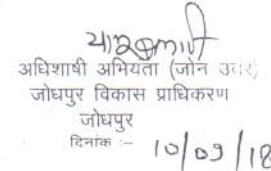 अधिशाषी अभियंता (जोन उत्तर)
जोधपुर विकास प्राधिकरण
जोधपुर
दिनांक :- 10/09/18